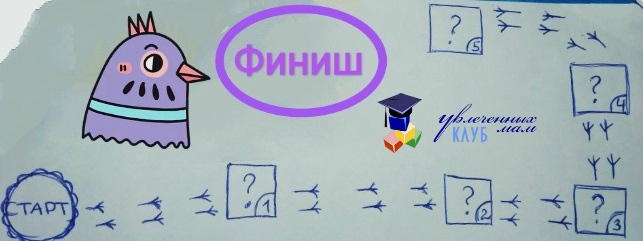 Финиш
? 5
? 4
увлеченных
КЛУБ мам
СТАРТ
? 1
? 2
? 3